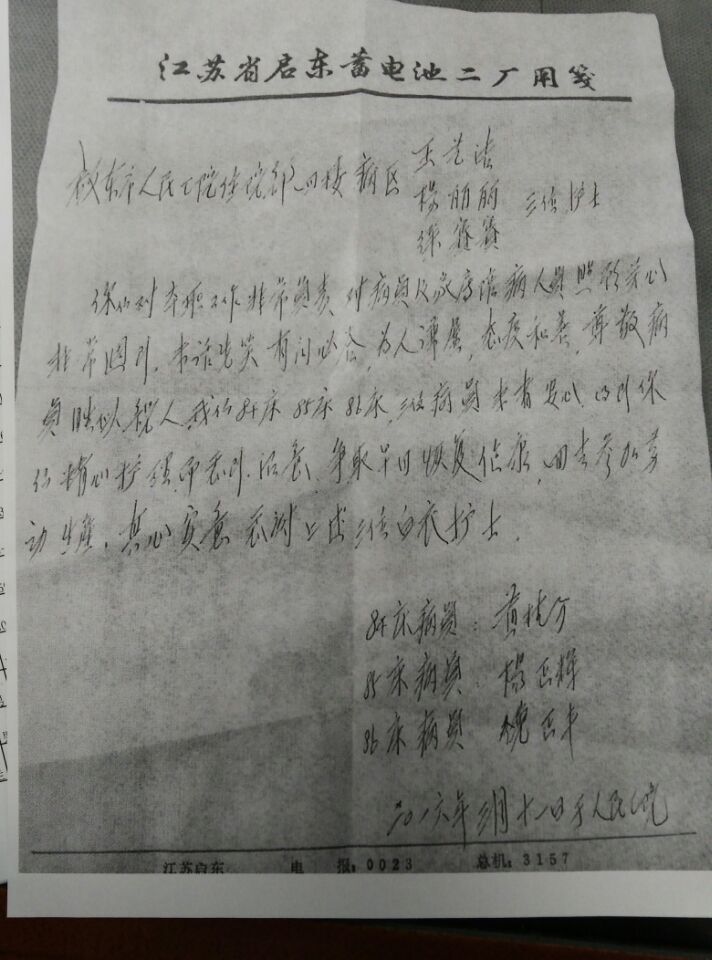 江苏省启东蓄电池二厂用笺
启东市人民医院住院部四楼病区
王芝洁
杨丽丽 三位护士
徐赛赛
你们对本职工作非常负责对病员及家庭陪病人员照顾关心
非常周到,未话先笑有问必答,为人谦虚,态度和蔼,尊敬病
员胜似亲人,我们84床85床86床,三位病员来者安心,得到你
们精心护理,争取早日恢复健康,回去参加劳
动生产,真心实意感谢上述三位白衣护士.
84床病员:黄
85床病员 杨正辉
86床病员 倪正
二〇一六年三月十一日于人民医院
江苏启东 电报:0023 总机:3157